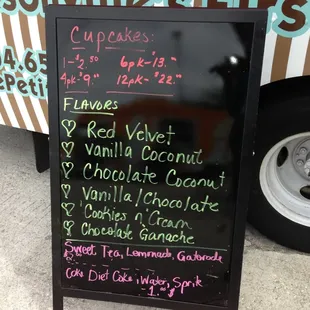 Cupcakes:
1-$2.50 6pk-$13.00
4pk-$9.00 12pk-$22.00
FLAVORS
Red Velvet
Vanilla Coconut
Chocolate Coconut
Vanilla/Chocolate
Cookies n' Cream
Chocolate Ganache
Sweet Tea, Lemonade, Gatorade
Coke, Diet Coke, Water, Sprite